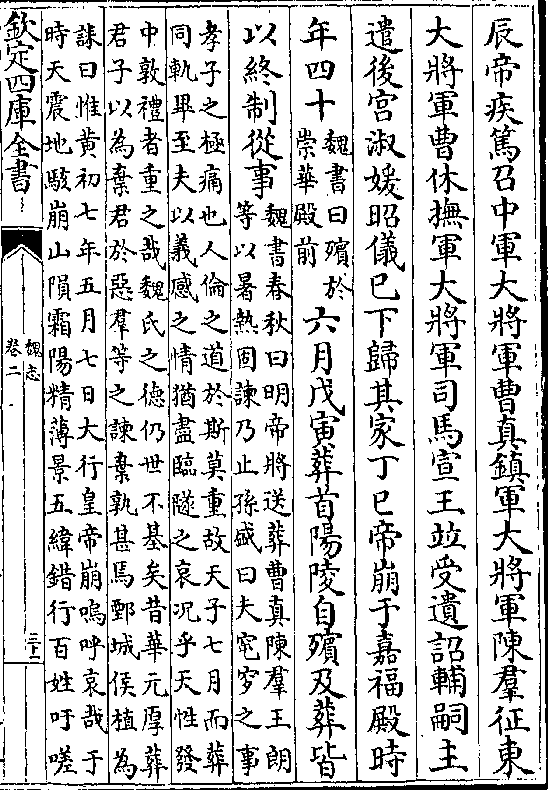 辰帝疾篤召中軍大將軍曹真鎮軍大將軍陳羣征東
大將軍曹休撫軍大將軍司馬宣王竝受遺詔輔嗣主
遣後宮淑媛昭儀已下歸其家丁巳帝崩于嘉福殿時
年四十
魏書曰殯於
崇華殿前
六月戊寅葬首陽陵自殯及葬皆
以終制從事
魏書春秋曰明帝將送葬曹真陳羣王朗
等以暑熱固諫乃止孫盛曰夫窀穸之事
孝子之極痛也人倫之道於斯莫重故天子七月而葬
同軌畢至夫以義感之情猶盡臨隧之哀況乎天性發
中敦禮者重之哉魏氏之德仍世不基矣昔華元厚葬
君子以為棄君於惡羣等之諫棄孰甚焉鄄城侯植為
誄曰惟黃初七年五月七日大行皇帝崩嗚呼哀哉于
時天震地駭崩山隕霜陽精薄景五緯錯行百姓吁嗟
欽定四庫全書
魏志
卷二
三十一